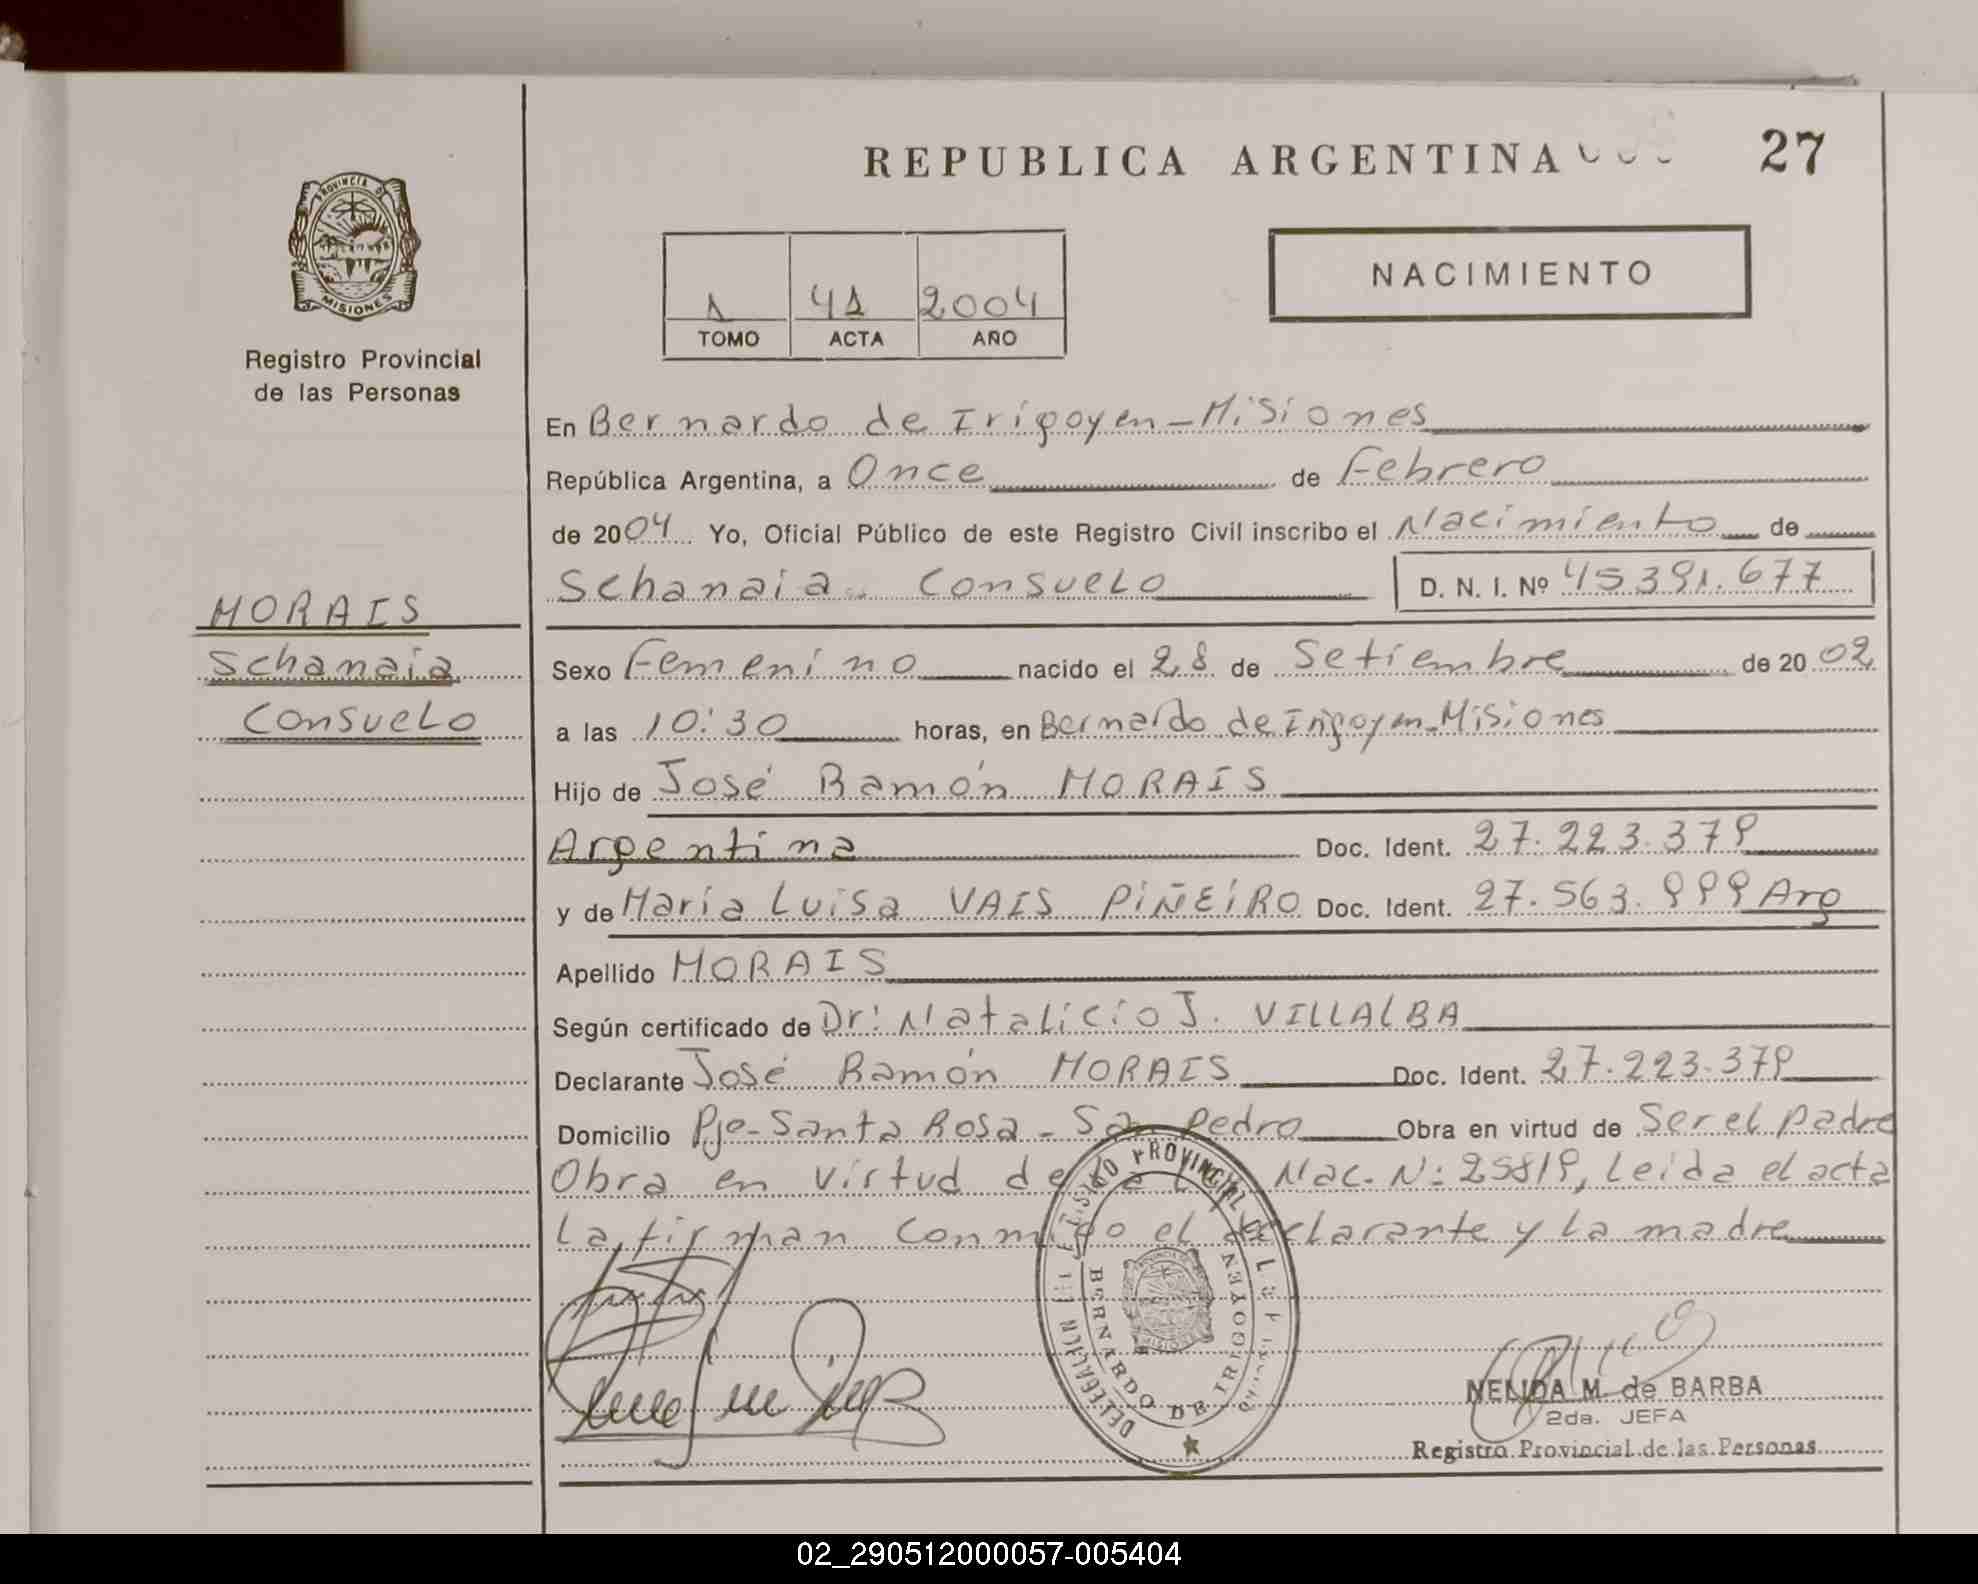 REPUBLICA ARGENTINA
27
PROVINCIA DE
MISIONES
Registro Provincial
de las Personas
1 41 2004
TOMO ACTA AÑO
NACIMIENTO
En Bernardo de Irigoyen - Misiones
República Argentina, a Once de Febrero
de 2004 Yo, Oficial Público de este Registro Civil inscribo el Nacimiento de
Schanaia Consuelo D. N. I. Nº 45391.677
MORAIS
Schanaia
Consuelo
Sexo Femenino nacido el 28 de Setiembre de 2002
a las 10:30 horas, en Bernardo de Irigoyen-Misiones
Hijo de José Ramón MORAIS
Argentina Doc. Ident. 27.223.379
y de María Luisa VAIS PIÑEIRO Doc. Ident. 27.563.999 Arg
Apellido MORAIS
Según certificado de Dr: Natalicio J. VILLALBA
Declarante José Ramón MORAIS Doc. Ident. 27.223.379
Domicilio Pje-Santa Rosa - San Pedro Obra en virtud de Ser el padre
Obra en virtud de Nac. N: 25819, Leida el acta
La firman conmigo el declarante y La madre
BERNARDO DE IRIGOYEN
NELIDA M. de BARBA
2da. JEFA
Registro Provincial de las Personas
02_290512000057-005404